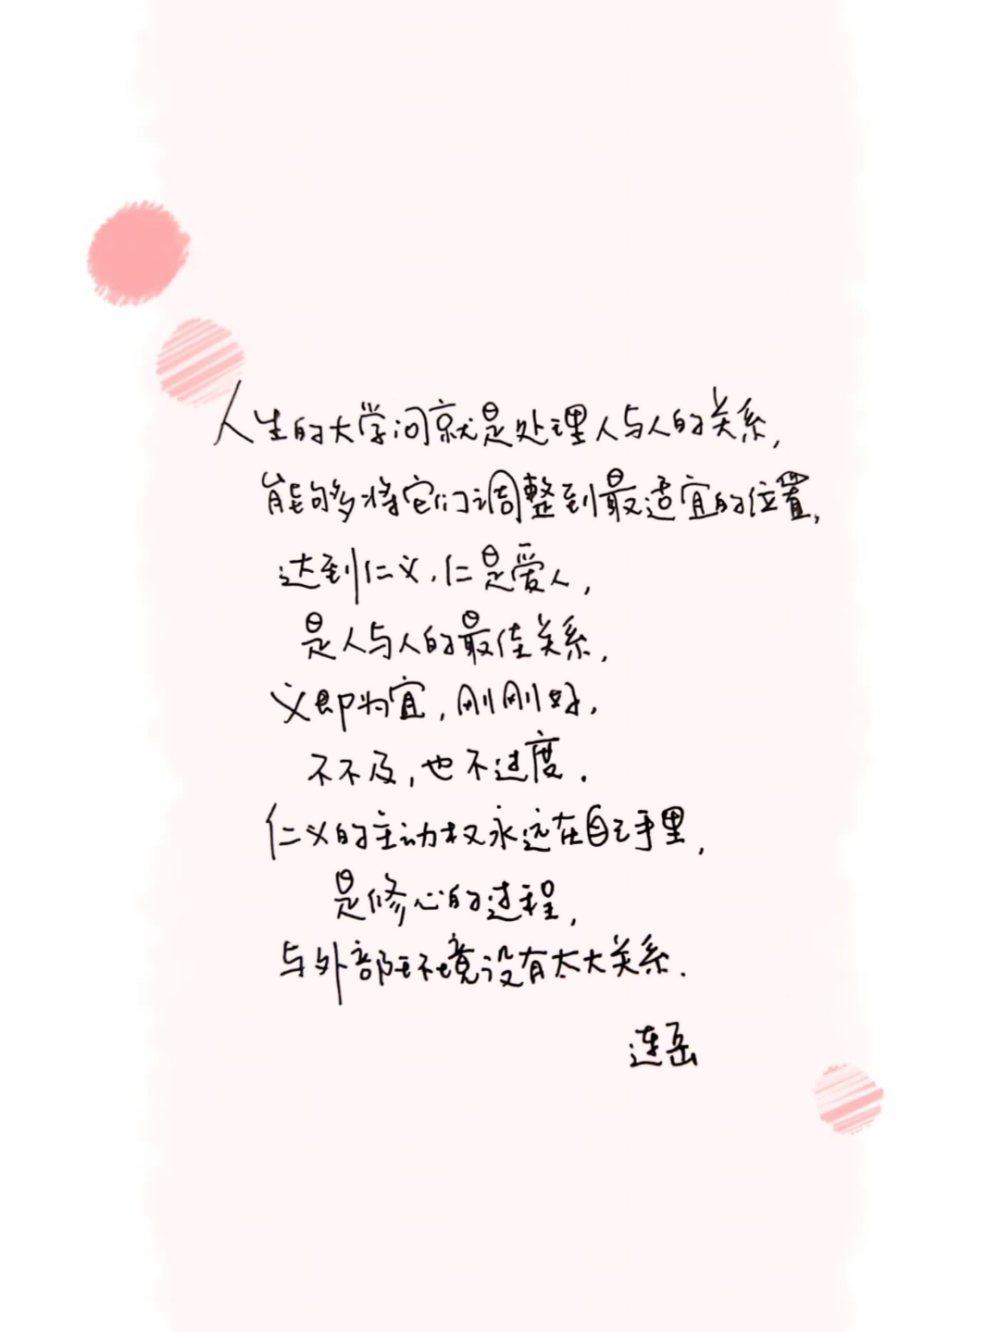 人生的大学问就是处理人与人的关系,
能够将它们调整到最适宜的位置,
达到仁义.仁是爱人,
是人与人的最佳关系,
义即为宜,刚刚好,
不不及,也不过度.
仁义的主动权永远在自己手里,
是修心的过程,
与外部环境没有太大关系.
连岳